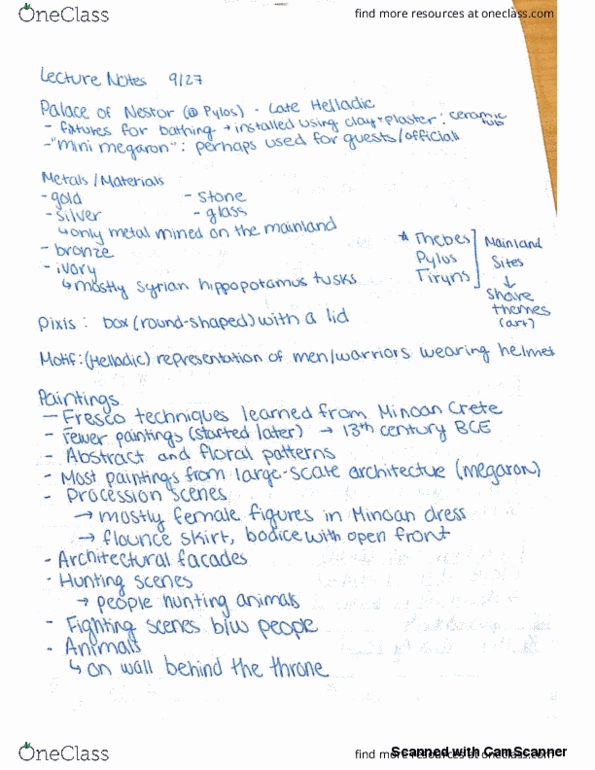 OneClass
find more resources at oneclass.com
Lecture Notes 9/27
Palace of Nestor (@ Pylos) - Late Helladic
- fixtures for bathing → installed using clay + plaster: ceramic tub
- "mini megaron": perhaps used for guests/officials
Metals/Materials
- gold
- silver
↳ only metal mined on the mainland
- bronze
- ivory
↳ mostly Syrian hippopotamus tusks
- stone
- glass
* Thebes
Pylos
Tiryns
Mainland
Sites
↓
Share
themes
(art)
Pixis: box (round-shaped) with a lid
Motif: (Helladic) representation of men/warriors wearing helmet
Paintings
- Fresco techniques learned from Minoan Crete
- Fewer paintings (started later) → 13th century BCE
- Abstract and floral patterns
- Most paintings from large-scale architecture (megaron)
- Procession scenes
→ mostly female figures in Minoan dress
→ flounce skirt, bodice with open front
- Architectural facades
- Hunting scenes
→ people hunting animals
- Fighting scenes b/w people
- Animals
↳ on wall behind the throne
OneClass
find more resources at oneclass.com
Scanned with CamScanner